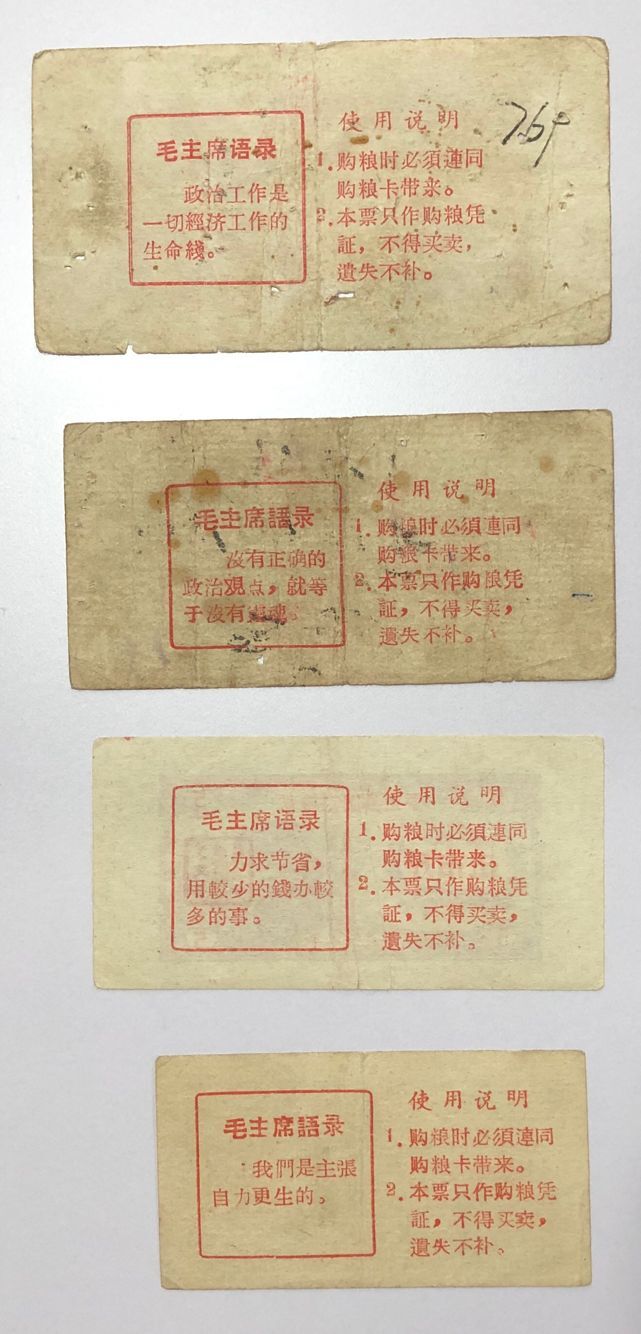 毛主席语录
政治工作是
一切經济工作的
生命綫。
使用说明
1.购粮时必須連同
购粮卡带来。
2.本票只作购粮凭
証，不得买卖，
遺失不补。
毛主席語录
沒有正确的
政治观点，就等
于沒有灵魂。
使用说明
1.购粮时必須連同
购粮卡带来。
2.本票只作购粮凭
証，不得买卖，
遺失不补。
毛主席语录
力求节省，
用較少的錢办較
多的事。
使用说明
1.购粮时必須連同
购粮卡带来。
2.本票只作购粮凭
証，不得买卖，
遺失不补。
毛主席語录
我們是主張
自力更生的。
使用说明
1.购粮时必須連同
购粮卡带来。
2.本票只作购粮凭
証，不得买卖，
遺失不补。